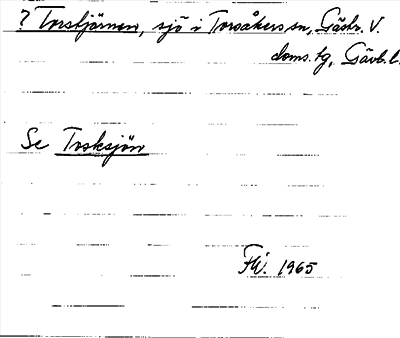 ? Torstjärnen, sjö i Torsåkers sn, Gästr. V.
doms. tg, Gävb. l.
Se Torsksjön
FW. 1965